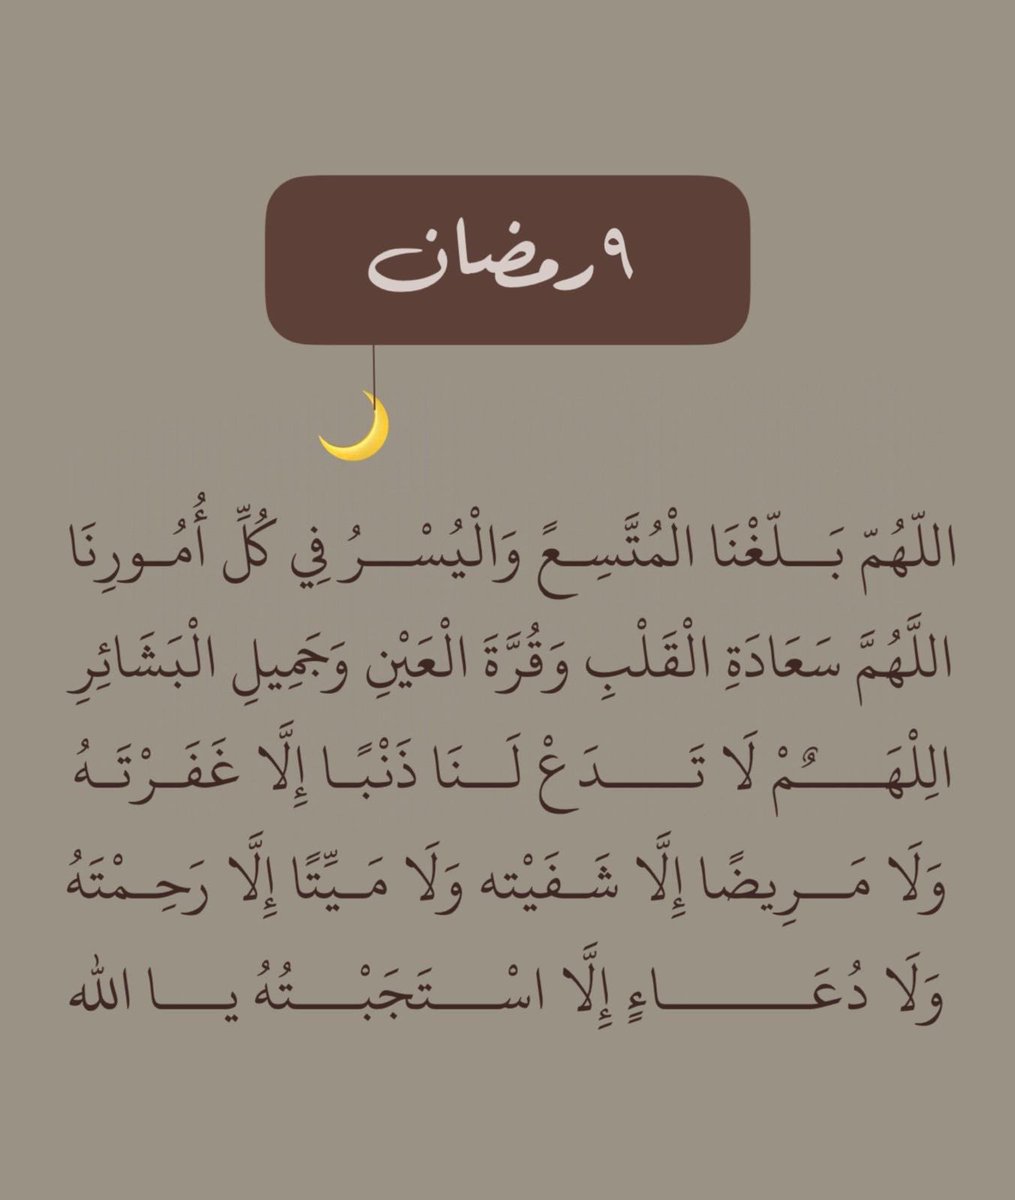 ٩ رمضان
اللّهُمّ بَلّغْنَا الْمُتَّسِعً وَالْيُسْرُ فِي كُلِّ أُمُورِنَا
اللَّهُمَّ سَعَادَةِ الْقَلْبِ وَقُرَّةَ الْعَيْنِ وَجَمِيلِ الْبَشَائِرِ
الِلْهَمٌْ لَا تَدَعْ لَنَا ذَنْبًا إِلَّا غَفَرْتَهُ
وَلَا مَرِيضًا إِلَّا شَفَيْته وَلَا مَيِّتًا إِلَّا رَحِمْتَهُ
وَلَا دُعَاءٍ إِلَّا اسْتَجَبْتُهُ يا الله